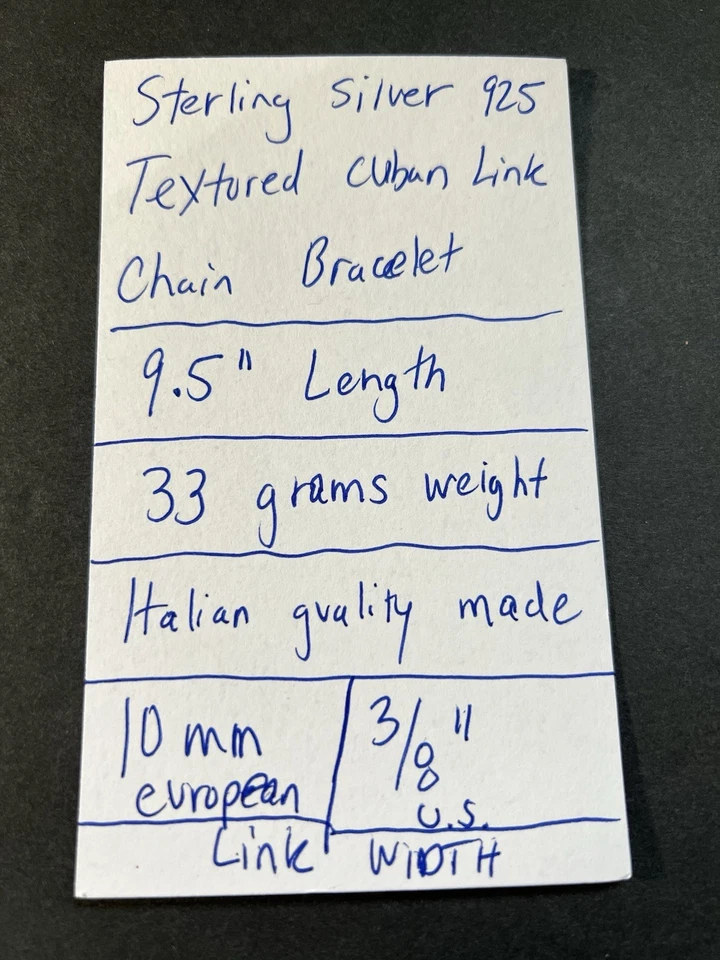 Sterling Silver 925
Textured Cuban Link
Chain Bracelet
9.5" Length
33 grams weight
Italian quality made
10 mm
european
3/8"
U.S.
Link WIDTH